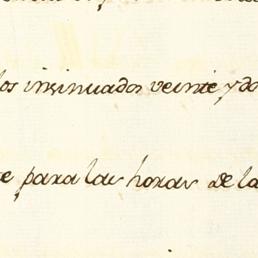 los insinuados veinte y do
te para las horas de la